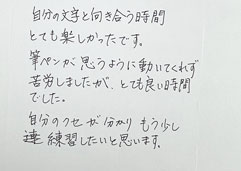 自分の文字と向き合う時間
とても楽しかったです。
筆ペンが思うように動いてくれず
苦労しましたが、とても良い時間
でした。
自分のクセが分かり もう少し
練習したいと思います。